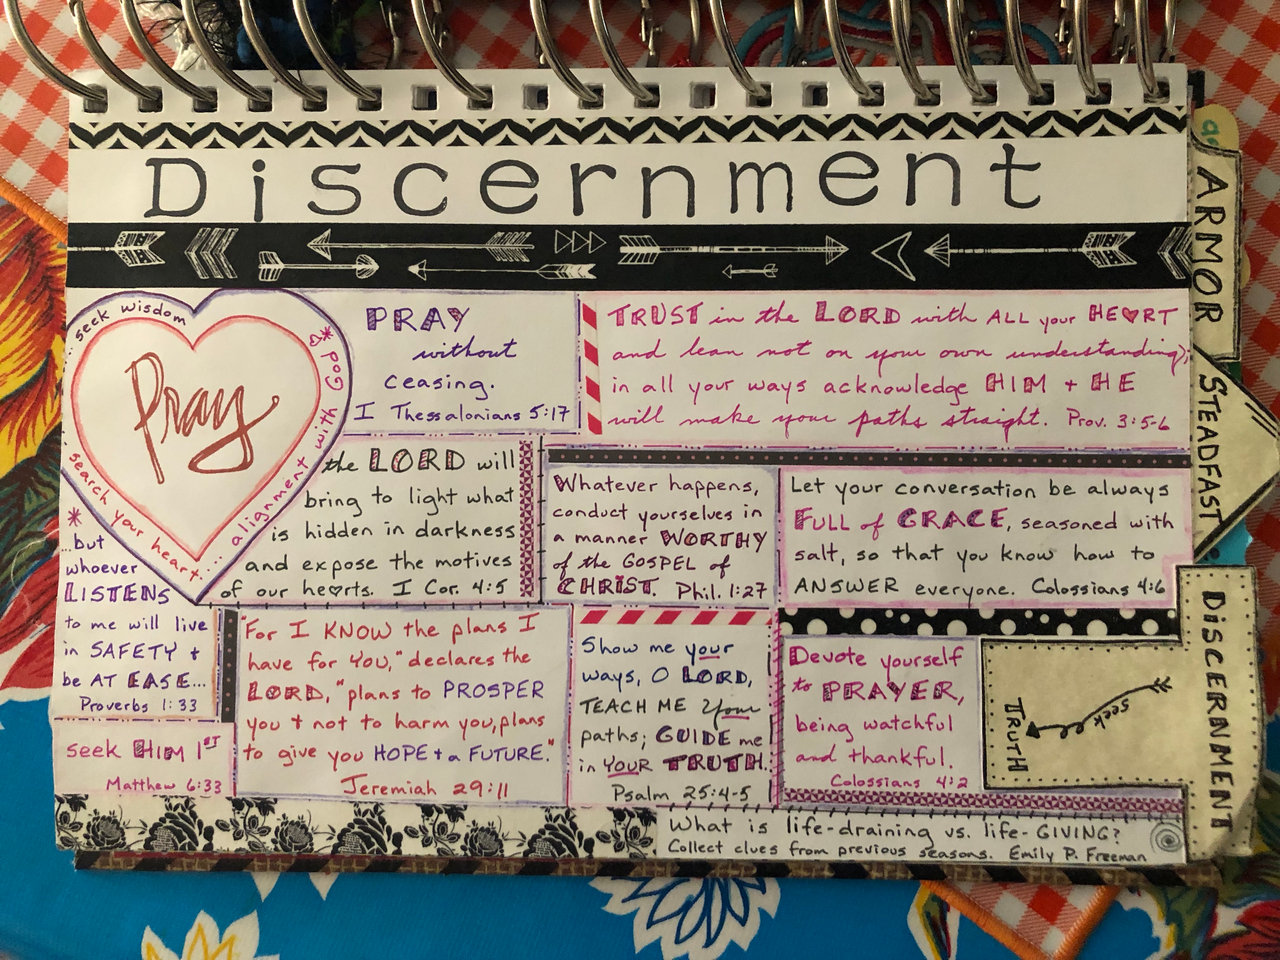 Discernment
...seek wisdom
* God
alignment with
...
search your heart...
Pray
PRAY
without
ceasing.
I Thessalonians 5:17
TRUST in the LORD with ALL your HEART
and lean not on your own understanding;
in all your ways acknowledge HIM + HE
will make your paths straight. Prov. 3:5-6
the LORD will
bring to light what
is hidden in darkness
and expose the motives
of our hearts. I Cor. 4:5
Whatever happens,
conduct yourselves in
a manner WORTHY
of the GOSPEL of
CHRIST. Phil. 1:27
Let your conversation be always
FULL of GRACE, seasoned with
salt, so that you know how to
ANSWER everyone. Colossians 4:6
*
...but
whoever
LISTENS
to me will live
in SAFETY +
be AT EASE...
Proverbs 1:33
seek HIM 1ST
Matthew 6:33
"For I KNOW the plans I
have for YOU," declares the
LORD, "plans to PROSPER
you + not to harm you, plans
to give you HOPE + a FUTURE."
Jeremiah 29:11
Show me your
ways, O LORD,
TEACH ME your
paths; GUIDE me
in YOUR TRUTH.
Psalm 25:4-5
Devote yourself
to PRAYER,
being watchful
and thankful.
Colossians 4:2
What is life-draining vs. life-GIVING?
Collect clues from previous seasons. Emily P. Freeman
ARMOR
STEADFAST
DISCERNMENT
seek
TRUTH